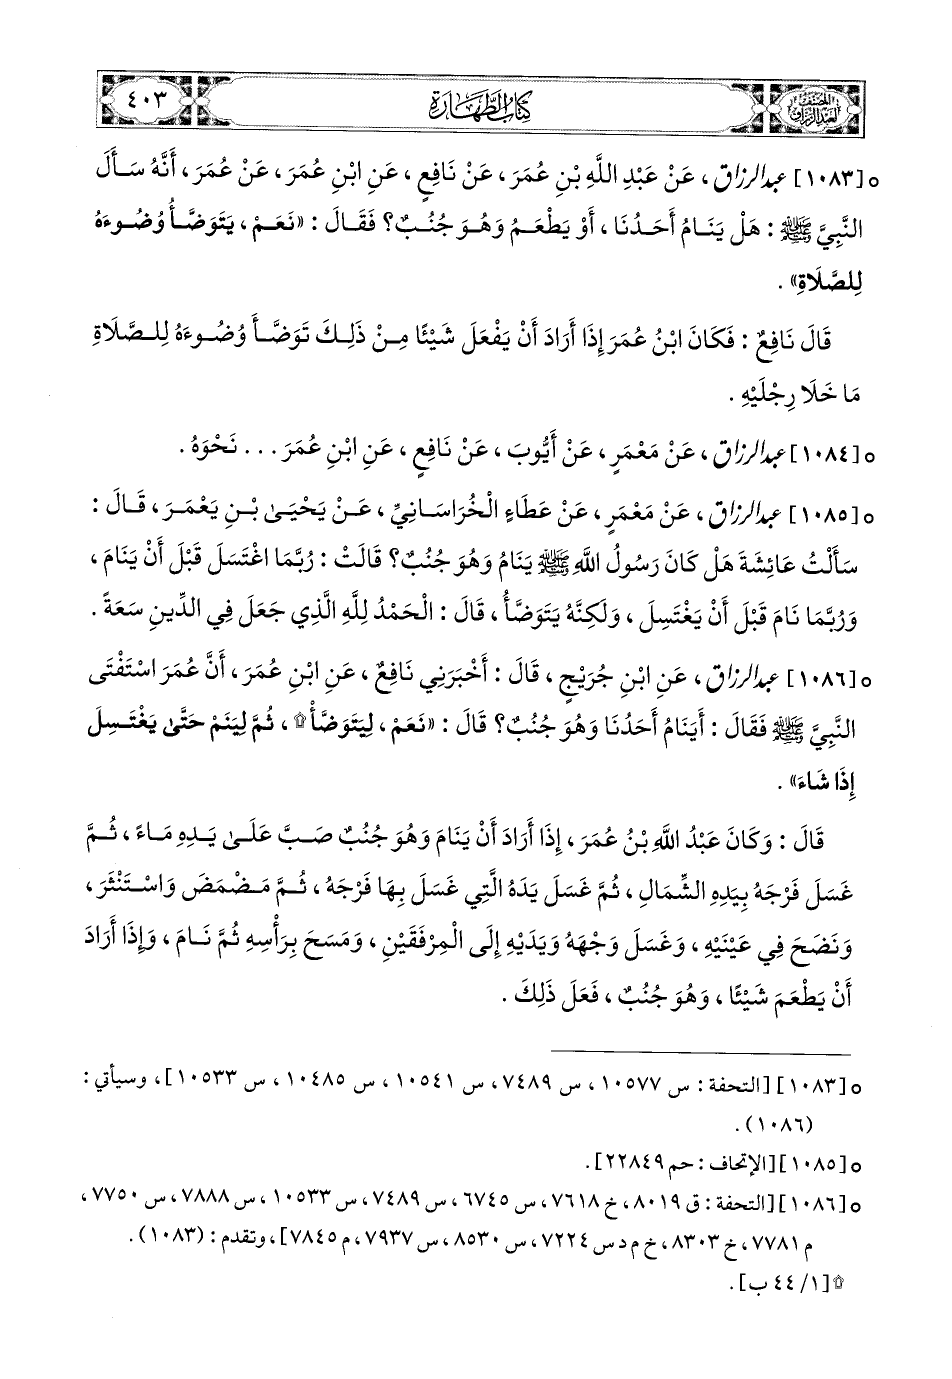 المصنف لعبد الرزاق
كتاب الطهارة
٤٠٣
٥ [١٠٨٣] عبد الرزاق، عَنْ عَبْدِ اللَّهِ بْنِ عُمَرَ، عَنْ نَافِعٍ، عَنِ ابْنِ عُمَرَ، عَنْ عُمَرَ، أَنَّهُ سَأَلَ
النَّبِيَّ ﷺ: هَلْ يَنَامُ أَحَدُنَا، أَوْ يَطْعَمُ وَهُوَ جُنُبٌ؟ فَقَالَ: «نَعَمْ، يَتَوَضَّأُ وُضُوءَهُ
لِلصَّلَاةِ».
قَالَ نَافِعٌ: فَكَانَ ابْنُ عُمَرَ إِذَا أَرَادَ أَنْ يَفْعَلَ شَيْئًا مِنْ ذَلِكَ تَوَضَّأَ وُضُوءَهُ لِلصَّلَاةِ
مَا خَلَا رِجْلَيْهِ.
٥ [١٠٨٤] عبد الرزاق، عَنْ مَعْمَرٍ، عَنْ أَيُّوبَ، عَنْ نَافِعٍ، عَنِ ابْنِ عُمَرَ ... نَحْوَهُ.
٥ [١٠٨٥] عبد الرزاق، عَنْ مَعْمَرٍ، عَنْ عَطَاءٍ الْخُرَاسَانِيِّ، عَنْ يَحْيَىٰ بْنِ يَعْمَرَ، قَالَ:
سَأَلْتُ عَائِشَةَ هَلْ كَانَ رَسُولُ اللَّهِ ﷺ يَنَامُ وَهُوَ جُنُبٌ؟ قَالَتْ: رُبَّمَا اغْتَسَلَ قَبْلَ أَنْ يَنَامَ،
وَرُبَّمَا نَامَ قَبْلَ أَنْ يَغْتَسِلَ، وَلَكِنَّهُ يَتَوَضَّأُ، قَالَ: الْحَمْدُ لِلَّهِ الَّذِي جَعَلَ فِي الدِّينِ سَعَةً.
٥ [١٠٨٦] عبد الرزاق، عَنِ ابْنِ جُرَيْجٍ، قَالَ: أَخْبَرَنِي نَافِعٌ، عَنِ ابْنِ عُمَرَ، أَنَّ عُمَرَ اسْتَفْتَى
النَّبِيَّ ﷺ فَقَالَ: أَيَنَامُ أَحَدُنَا وَهُوَ جُنُبٌ؟ قَالَ: «نَعَمْ، لِيَتَوَضَّأْ۩، ثُمَّ لِيَنَمْ حَتَّىٰ يَغْتَسِلَ
إِذَا شَاءَ».
قَالَ: وَكَانَ عَبْدُ اللَّهِ بْنُ عُمَرَ، إِذَا أَرَادَ أَنْ يَنَامَ وَهُوَ جُنُبٌ صَبَّ عَلَىٰ يَدِهِ مَاءً، ثُمَّ
غَسَلَ فَرْجَهُ بِيَدِهِ الشِّمَالِ، ثُمَّ غَسَلَ يَدَهُ الَّتِي غَسَلَ بِهَا فَرْجَهُ، ثُمَّ مَضْمَضَ وَاسْتَنْثَرَ،
وَنَضَحَ فِي عَيْنَيْهِ، وَغَسَلَ وَجْهَهُ وَيَدَيْهِ إِلَى الْمِرْفَقَيْنِ، وَمَسَحَ بِرَأْسِهِ ثُمَّ نَامَ، وَإِذَا أَرَادَ
أَنْ يَطْعَمَ شَيْئًا، وَهُوَ جُنُبٌ، فَعَلَ ذَلِكَ.
٥ [١٠٨٣] [التحفة: س ١٠٥٧٧، س ٧٤٨٩، س ١٠٥٤١، س ١٠٤٨٥، س ١٠٥٣٣]، وسيأتي:
(١٠٨٦).
٥ [١٠٨٥] [الإتحاف: حم ٢٢٨٤٩].
٥ [١٠٨٦] [التحفة: ق ٨٠١٩، خ ٧٦١٨، س ٦٧٤٥، س ٧٤٨٩، س ١٠٥٣٣، س ٧٨٨٨، س ٧٧٥٠،
م ٧٧٨١، خ ٨٣٠٣، خ م د س ٧٢٢٤، س ٨٥٣٠، س ٧٩٣٧، م ٧٨٤٥]، وتقدم: (١٠٨٣).
۩ [١/ ٤٤ ب].